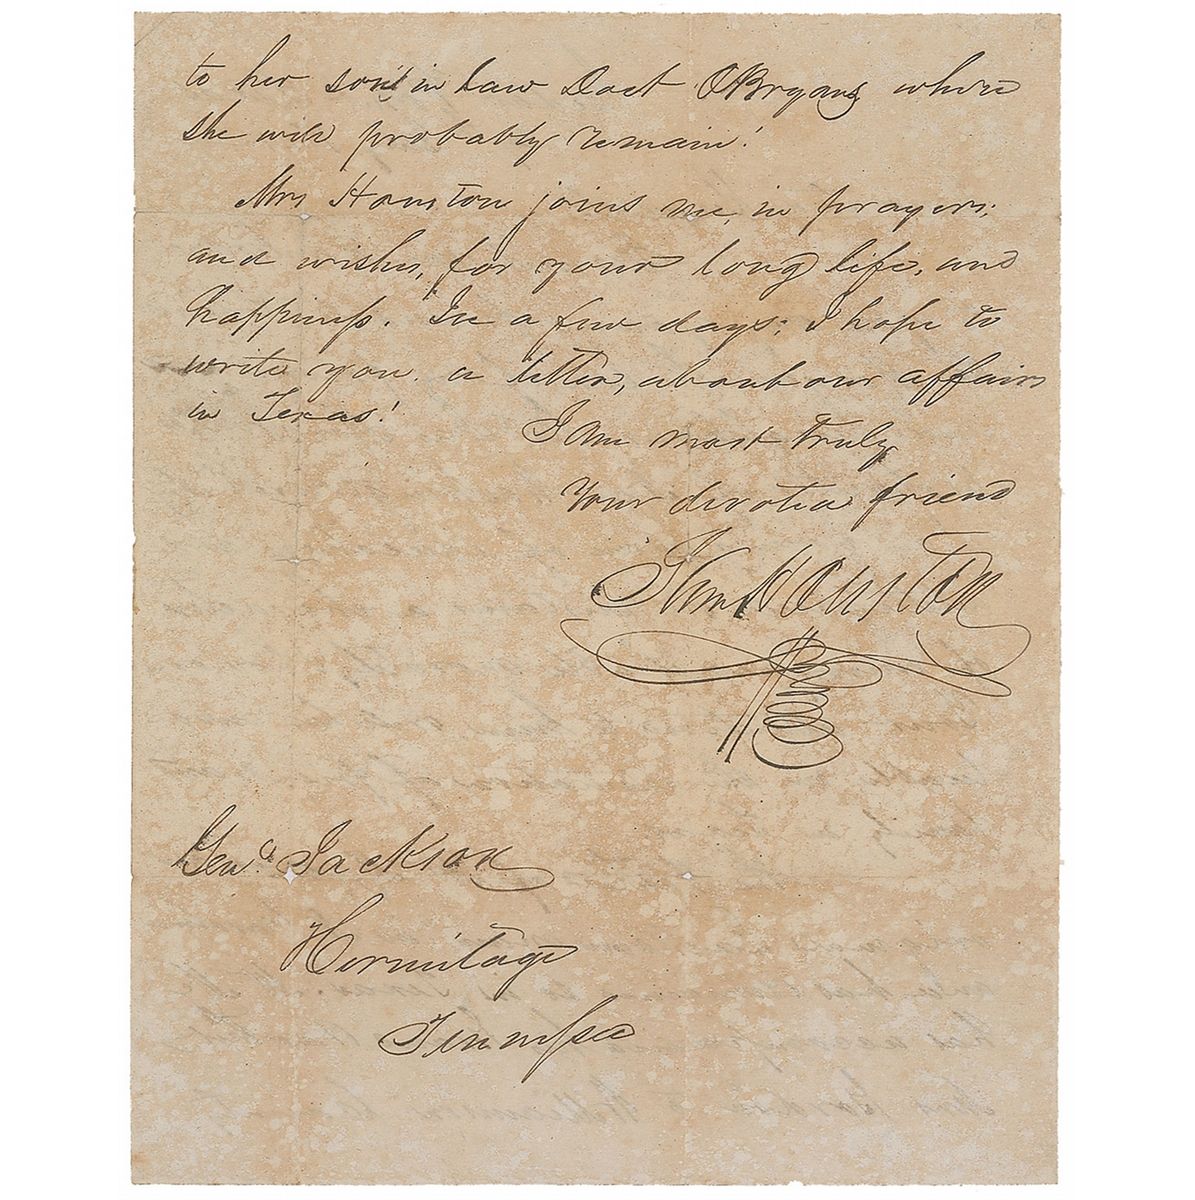 to her son's in Law Doct OBryans where
she will probably remain!
Mrs Houston joins me, in prayers,
and wishes, for your long life, and
happiness. In a few days; I hope to
write you, a letter, about our affairs
in Texas!
I am most truly
Your devoted friend
Sam Houston
Genl. Jackson
Hermitage
Tennessee